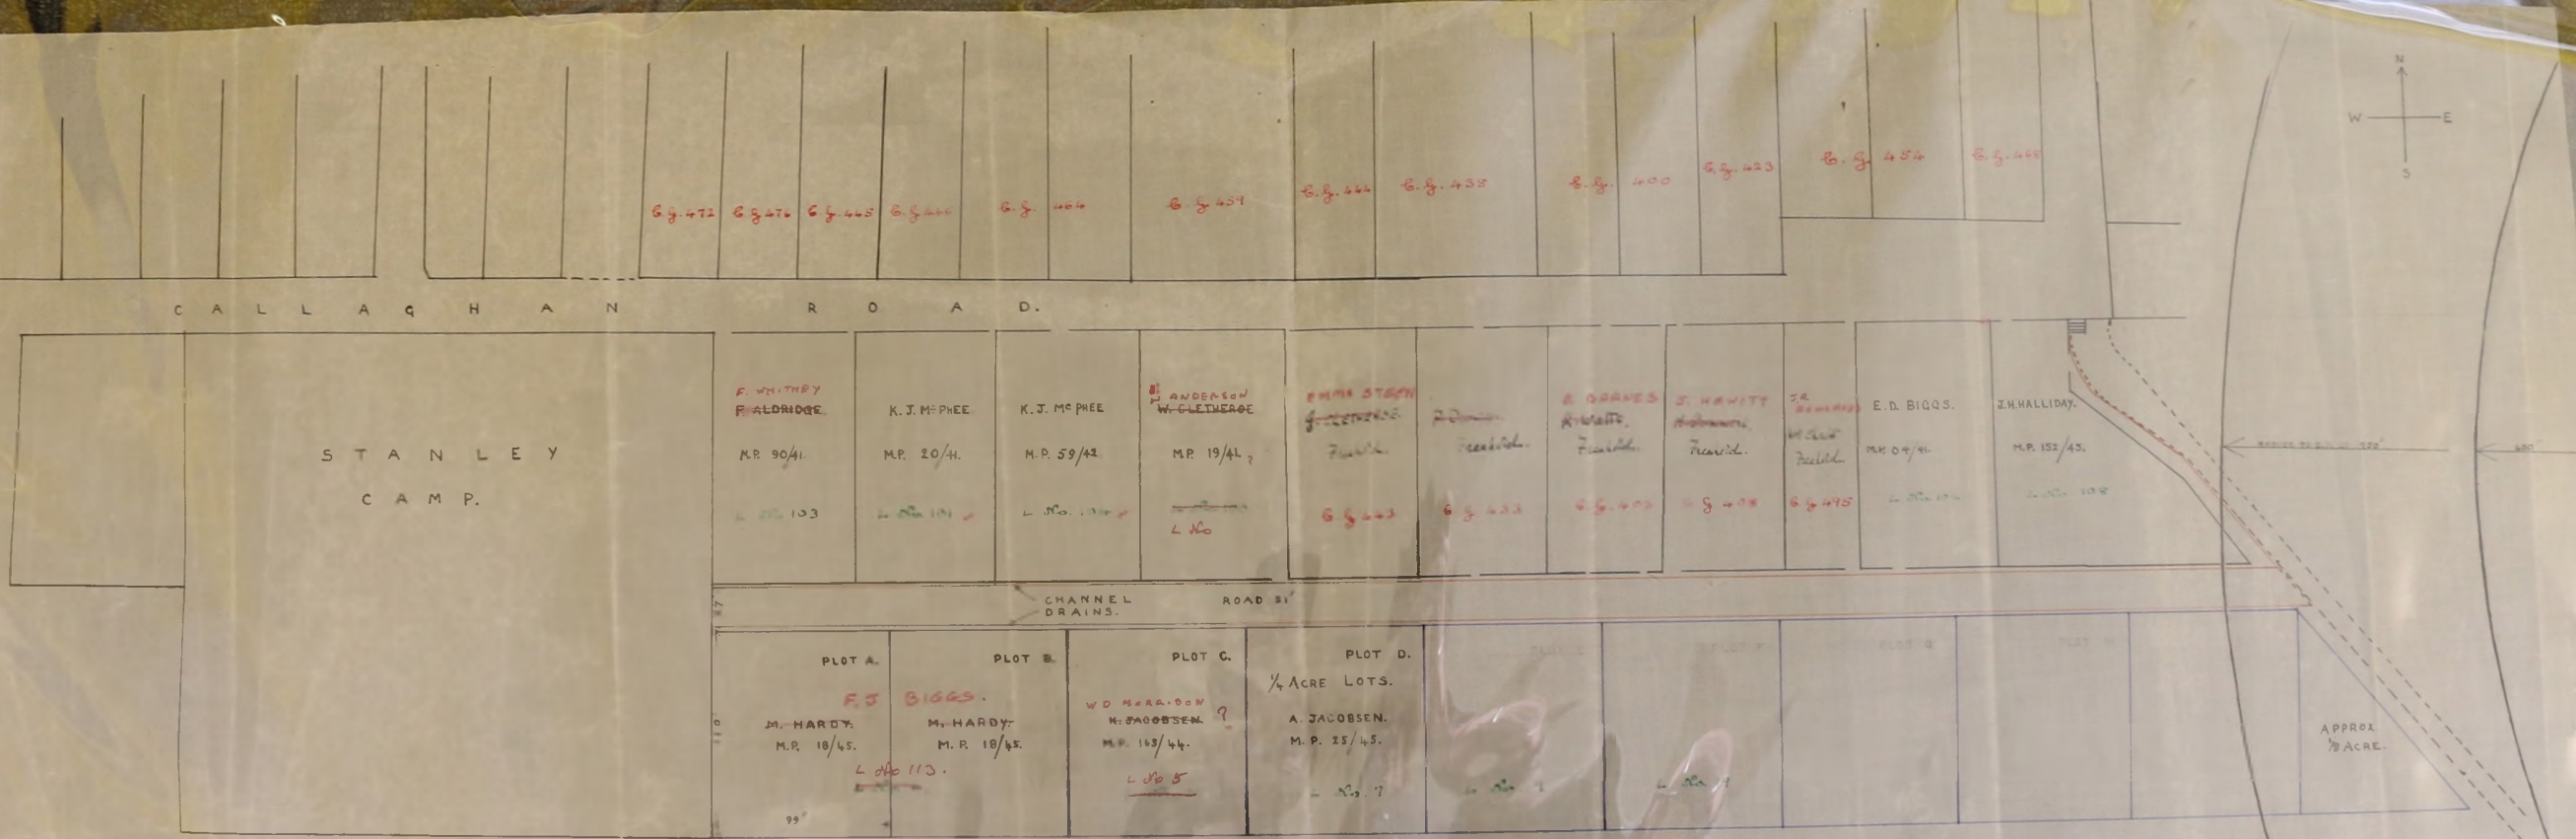 N
W E
S
C.G. 472
C.G. 476
C.G. 445
C.G.
C.G. 464
C.G. 459
C.G. 444
C.G. 438
C.G. 400
C.G. 423
C.G. 454
C.G.
CALLAGHAN ROAD.
STANLEY
CAMP.
F. WHITNEY
F. ALDRIDGE
M.P. 90/41.
L No. 103
K. J. McPHEE
M.P. 20/41.
L No. 101
K. J. McPHEE
M.P. 59/42
L No.
ANDERSON
W. CLETHEROE
M.P. 19/41 ?
L No
EMMA STEEN
G. CLETHEROE
Freehold.
C.G. 443
Freehold.
C.G. 433
E BARNES
Freehold.
C.G.
J. HEWITT
Freehold.
G 408
J.R.
Freehold
C.G. 495
E.D. BIGGS.
M.P. 04/41.
L No.
J.H. HALLIDAY.
M.P. 152/45.
L No. 108
CHANNEL
DRAINS.
ROAD 31'
110'
PLOT A.
PLOT B.
F.J BIGGS.
M. HARDY.
M. HARDY.
M.P. 18/45.
M.P. 18/45.
L No 113.
99'
PLOT C.
W D MORRISON
K. JACOBSEN ?
M.P. 163/44.
L No 5
PLOT D.
1/4 ACRE LOTS.
A. JACOBSEN.
M.P. 25/45.
L No. 7
L No
PLOT F
L No. 9
PLOT G
PLOT H
APPROX
1/8 ACRE.